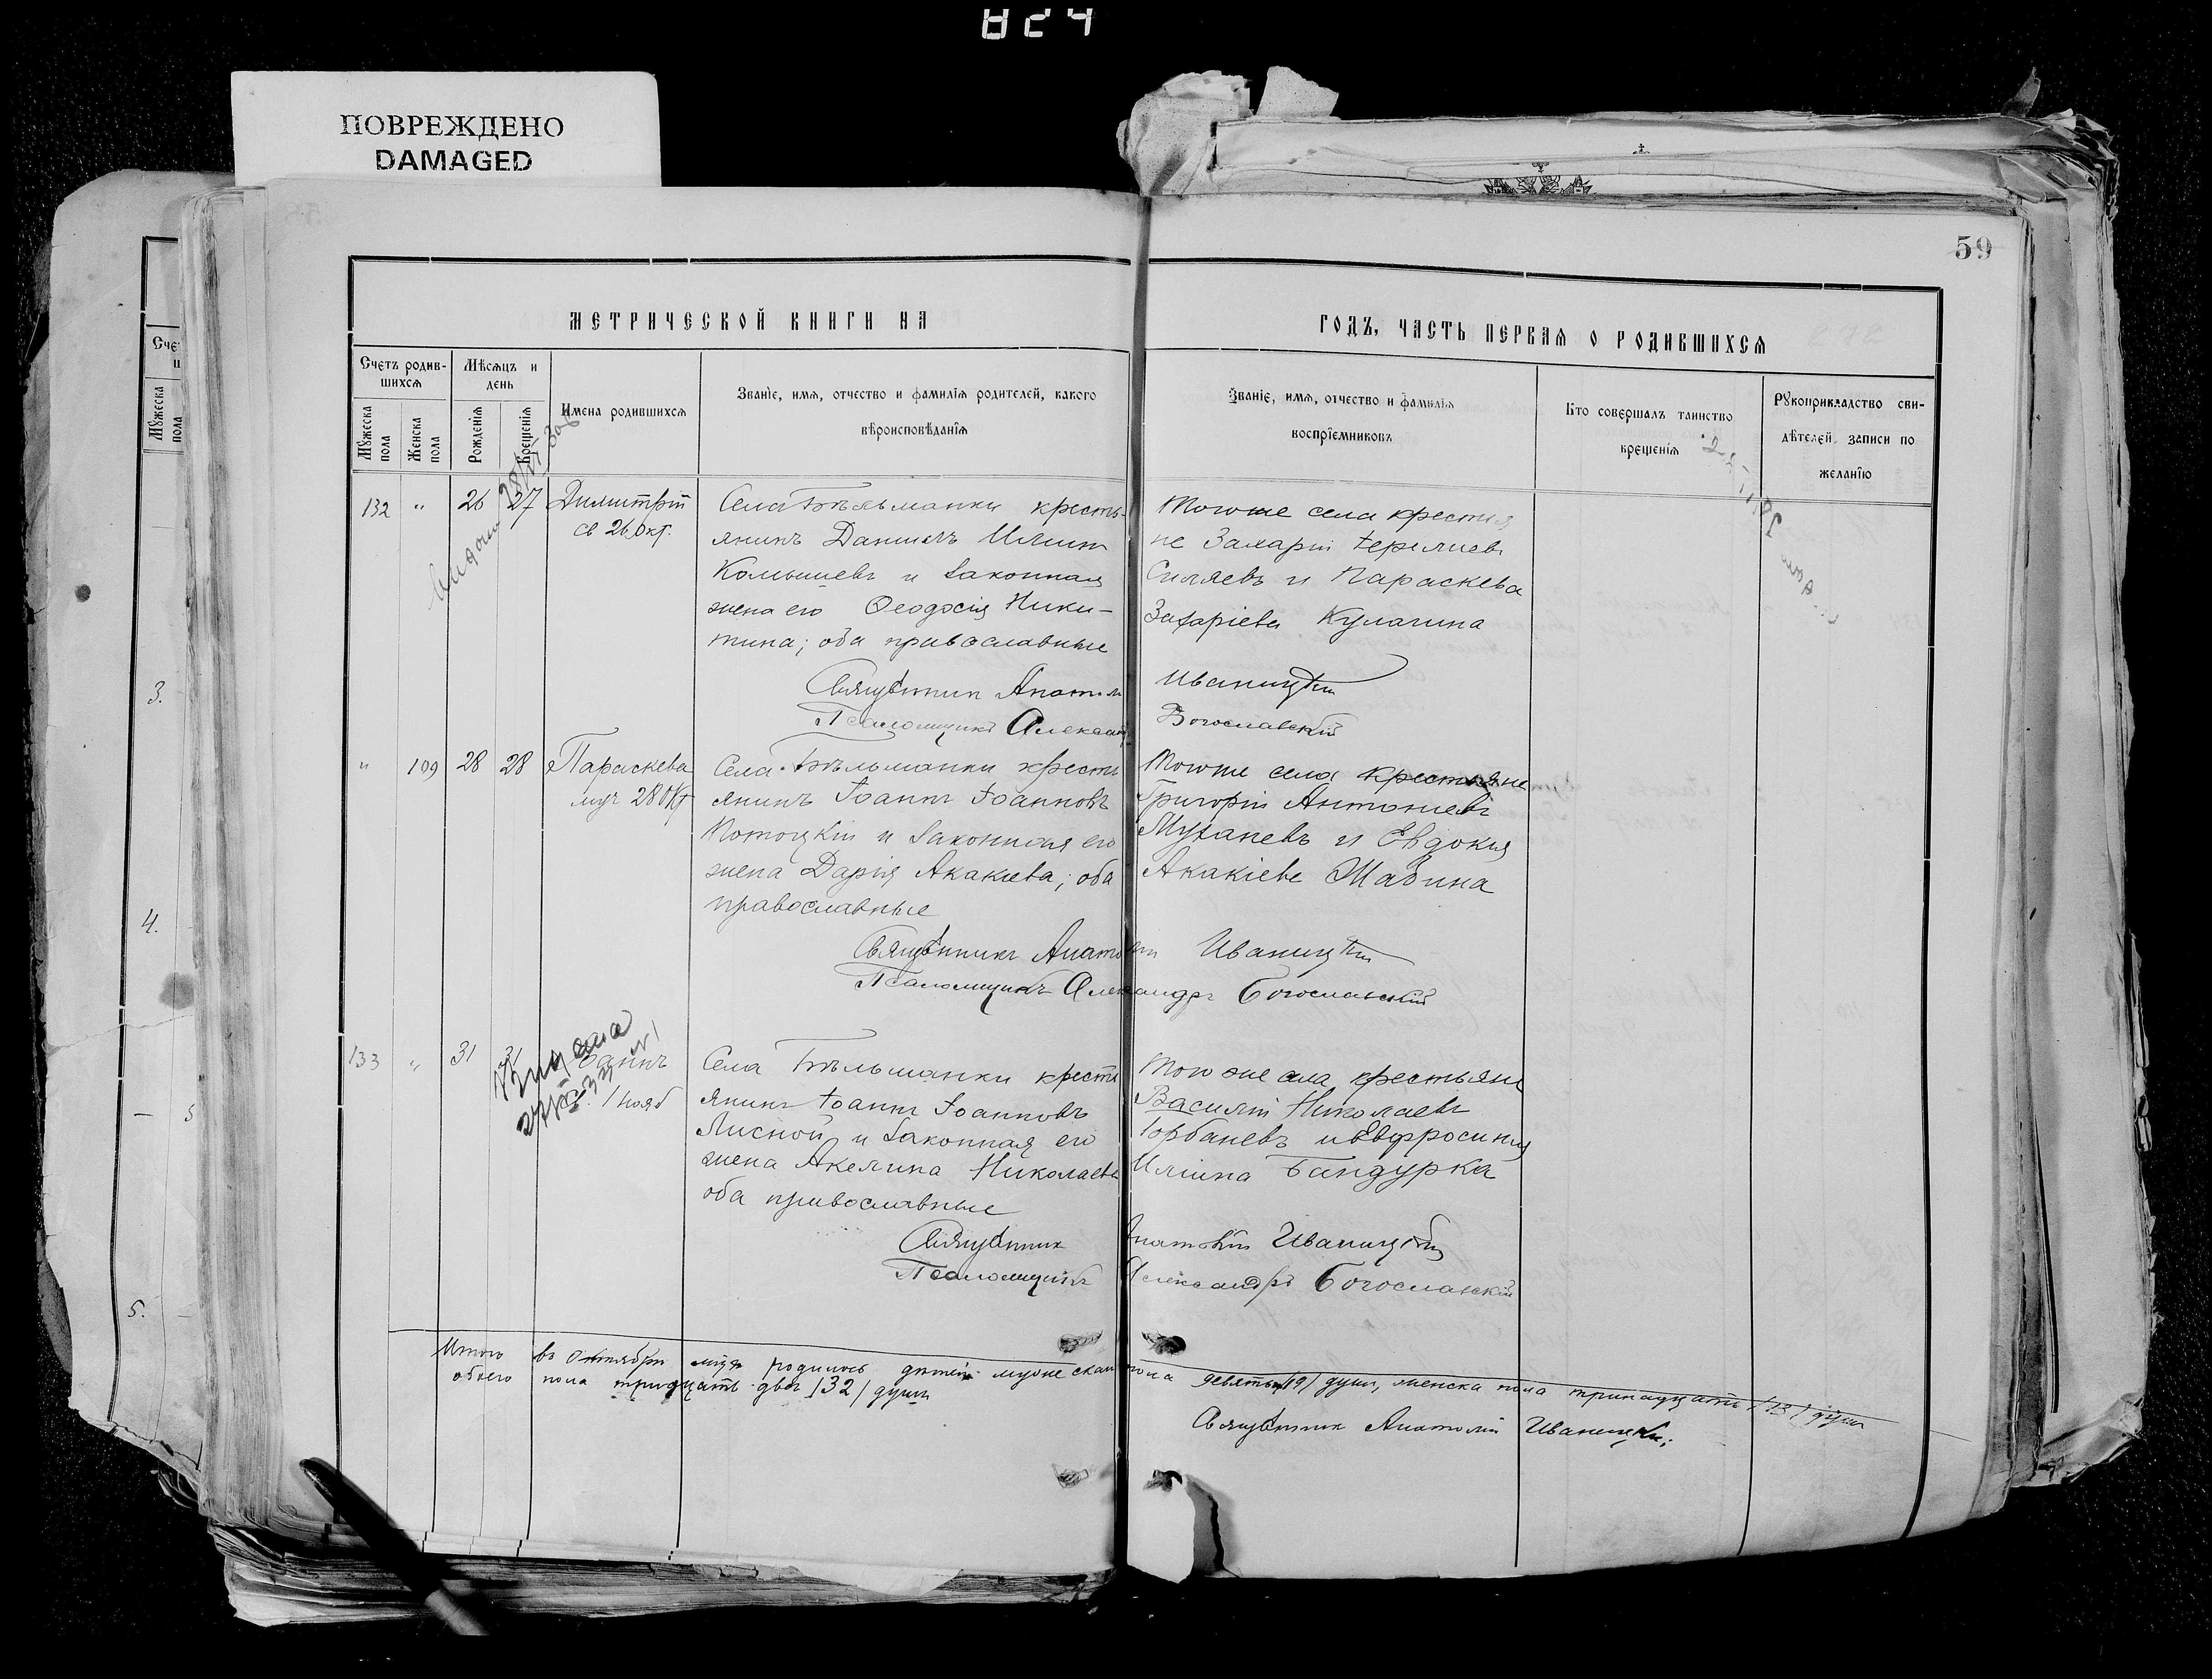 ПОВРЕЖДЕНО
DAMAGED
59
МЕТРИЧЕСКОЙ КНИГИ НА
ГОДЪ, ЧАСТЬ ПЕРВАЯ О РОДИВШИХСЯ
Счетъ родив-
шихся
Мужеска пола
Женска пола
Мѣсяцъ и
день
Рожденія
Крещенія
Имена родившихся
Званіе, имя, отчество и фамилія родителей, какого
вѣроисповѣданія
Званіе, имя, отчество и фамилія
воспріемниковъ
Кто совершалъ таинство
крещенія
Рукоприкладство сви-
дѣтелей записи по
желанію
132 " 26 27 Димитрій
св 26 Окт.
Села Бѣльманки кресть-
янинъ Даниилъ Иліин
Комышевъ и законная
жена его Ѳеодосія Ники-
тина; оба православные
Тогоже села крестья
не Захарій
и Параскева
Захаріева Кулагина
Священник Анатолій Иваницкій
Псаломщикъ Александръ Богославскій
" 109 28 28 Параскева
муч 28 Окт
Села Бѣльманки кресть
янинъ Іоаннъ Іоанновъ
Потоцкій и законная его
жена Дарія Акакіева; оба
православные
Тогоже села крестьяне
Григорій Антоніевъ
Муханевъ и Евдокия
Акакіева Шабина
Священникъ Анатолій Иваницкій
Псаломщикъ Александръ Богославскій
133 " 31 31 Іоаннъ
1 нояб
Села Бѣльманки кресть
янинъ Іоаннъ Іоанновъ
Лисной и законная его
жена Акелина Николаева
оба православные
Того же села крестьяне
Василій Николаевъ
Горбаневъ и Евфросинія
Иліина Бандурка
Священник Анатолій Иваницкій
Псаломщикъ Александръ Богославскій
Итого въ Октябрѣ мцѣ родилось дѣтей: мужескаго пола девятнад /19/ душъ, женска пола тринадцать /13/ душъ
обоего пола тридцать двѣ /32/ души
Священник Анатолій Иваницкій
3.
4.
5.